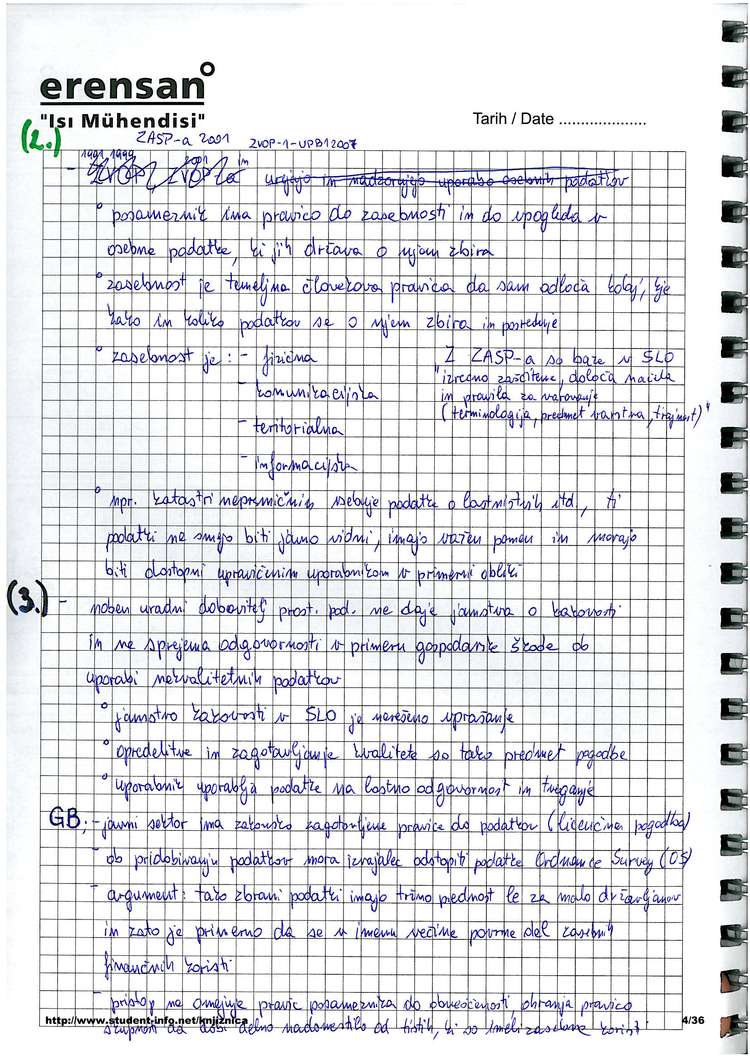 erensan
"Isı Mühendisi"
Tarih / Date ....................
(2.)
ZASP-a 2001 ZVOP-1-UPB1 2007
1991, 1999 2001 im
- ZVOP, ZVOP-a urejajo in nadzorujejo uporabo osebnih podatkov
° posameznik ima pravico do zasebnosti in do vpogleda v
osebne podatke, ki jih država o njem zbira
° zasebnost je temeljna človekova pravica da sam odloča kdaj, kje
kako in koliko podatkov se o njem zbira in posreduje
° zasebnost je: - fizična
- komunikacijska
- teritorialna
- informacijska
Z ZASP-a so baze v SLO
"izrecno zaščitene, določa načela
in pravila za varovanje
(terminologija, predmet varstva, trajnost)"
° npr. katastri nepremičnin vsebuje podatke o lastnistvih itd., ti
podatki ne smejo biti javno vidni, imajo važen pomen in morajo
biti dostopni upravičenim uporabnikom v primerni obliki
(3.) - noben uradni dobavitelj prost. pod. ne daje jamstva o kakovosti
in ne sprejema odgovornosti v primeru gospodarske škode ob
uporabi nekvalitetnih podatkov
° jamstvo kakovosti v SLO je nerešeno vprašanje
° opredelitve in zagotavljanje kvalitete so tako predmet pogodbe
° uporabnik uporablja podatke na lastno odgovornost in tveganje
GB: - javni sektor ima zakonsko zagotovljene pravice do podatkov (licenčna pogodba)
- ob pridobivanju podatkov mora izvajalec odstopiti podatke Ordnance Survey (OS)
- argument: tako zbrani podatki imajo tržno prednost le za malo državljanov
in zato je primerno da se v imenu večine povrne del zasebnih
finančnih koristi
- pristop ne omejuje pravic posameznika do obveščenosti, ohranja pravico
skupnosti da dobi delno nadomestilo od tistih, ki so imeli zasebne korist
http://www.student-info.net/knjiznica
4/36